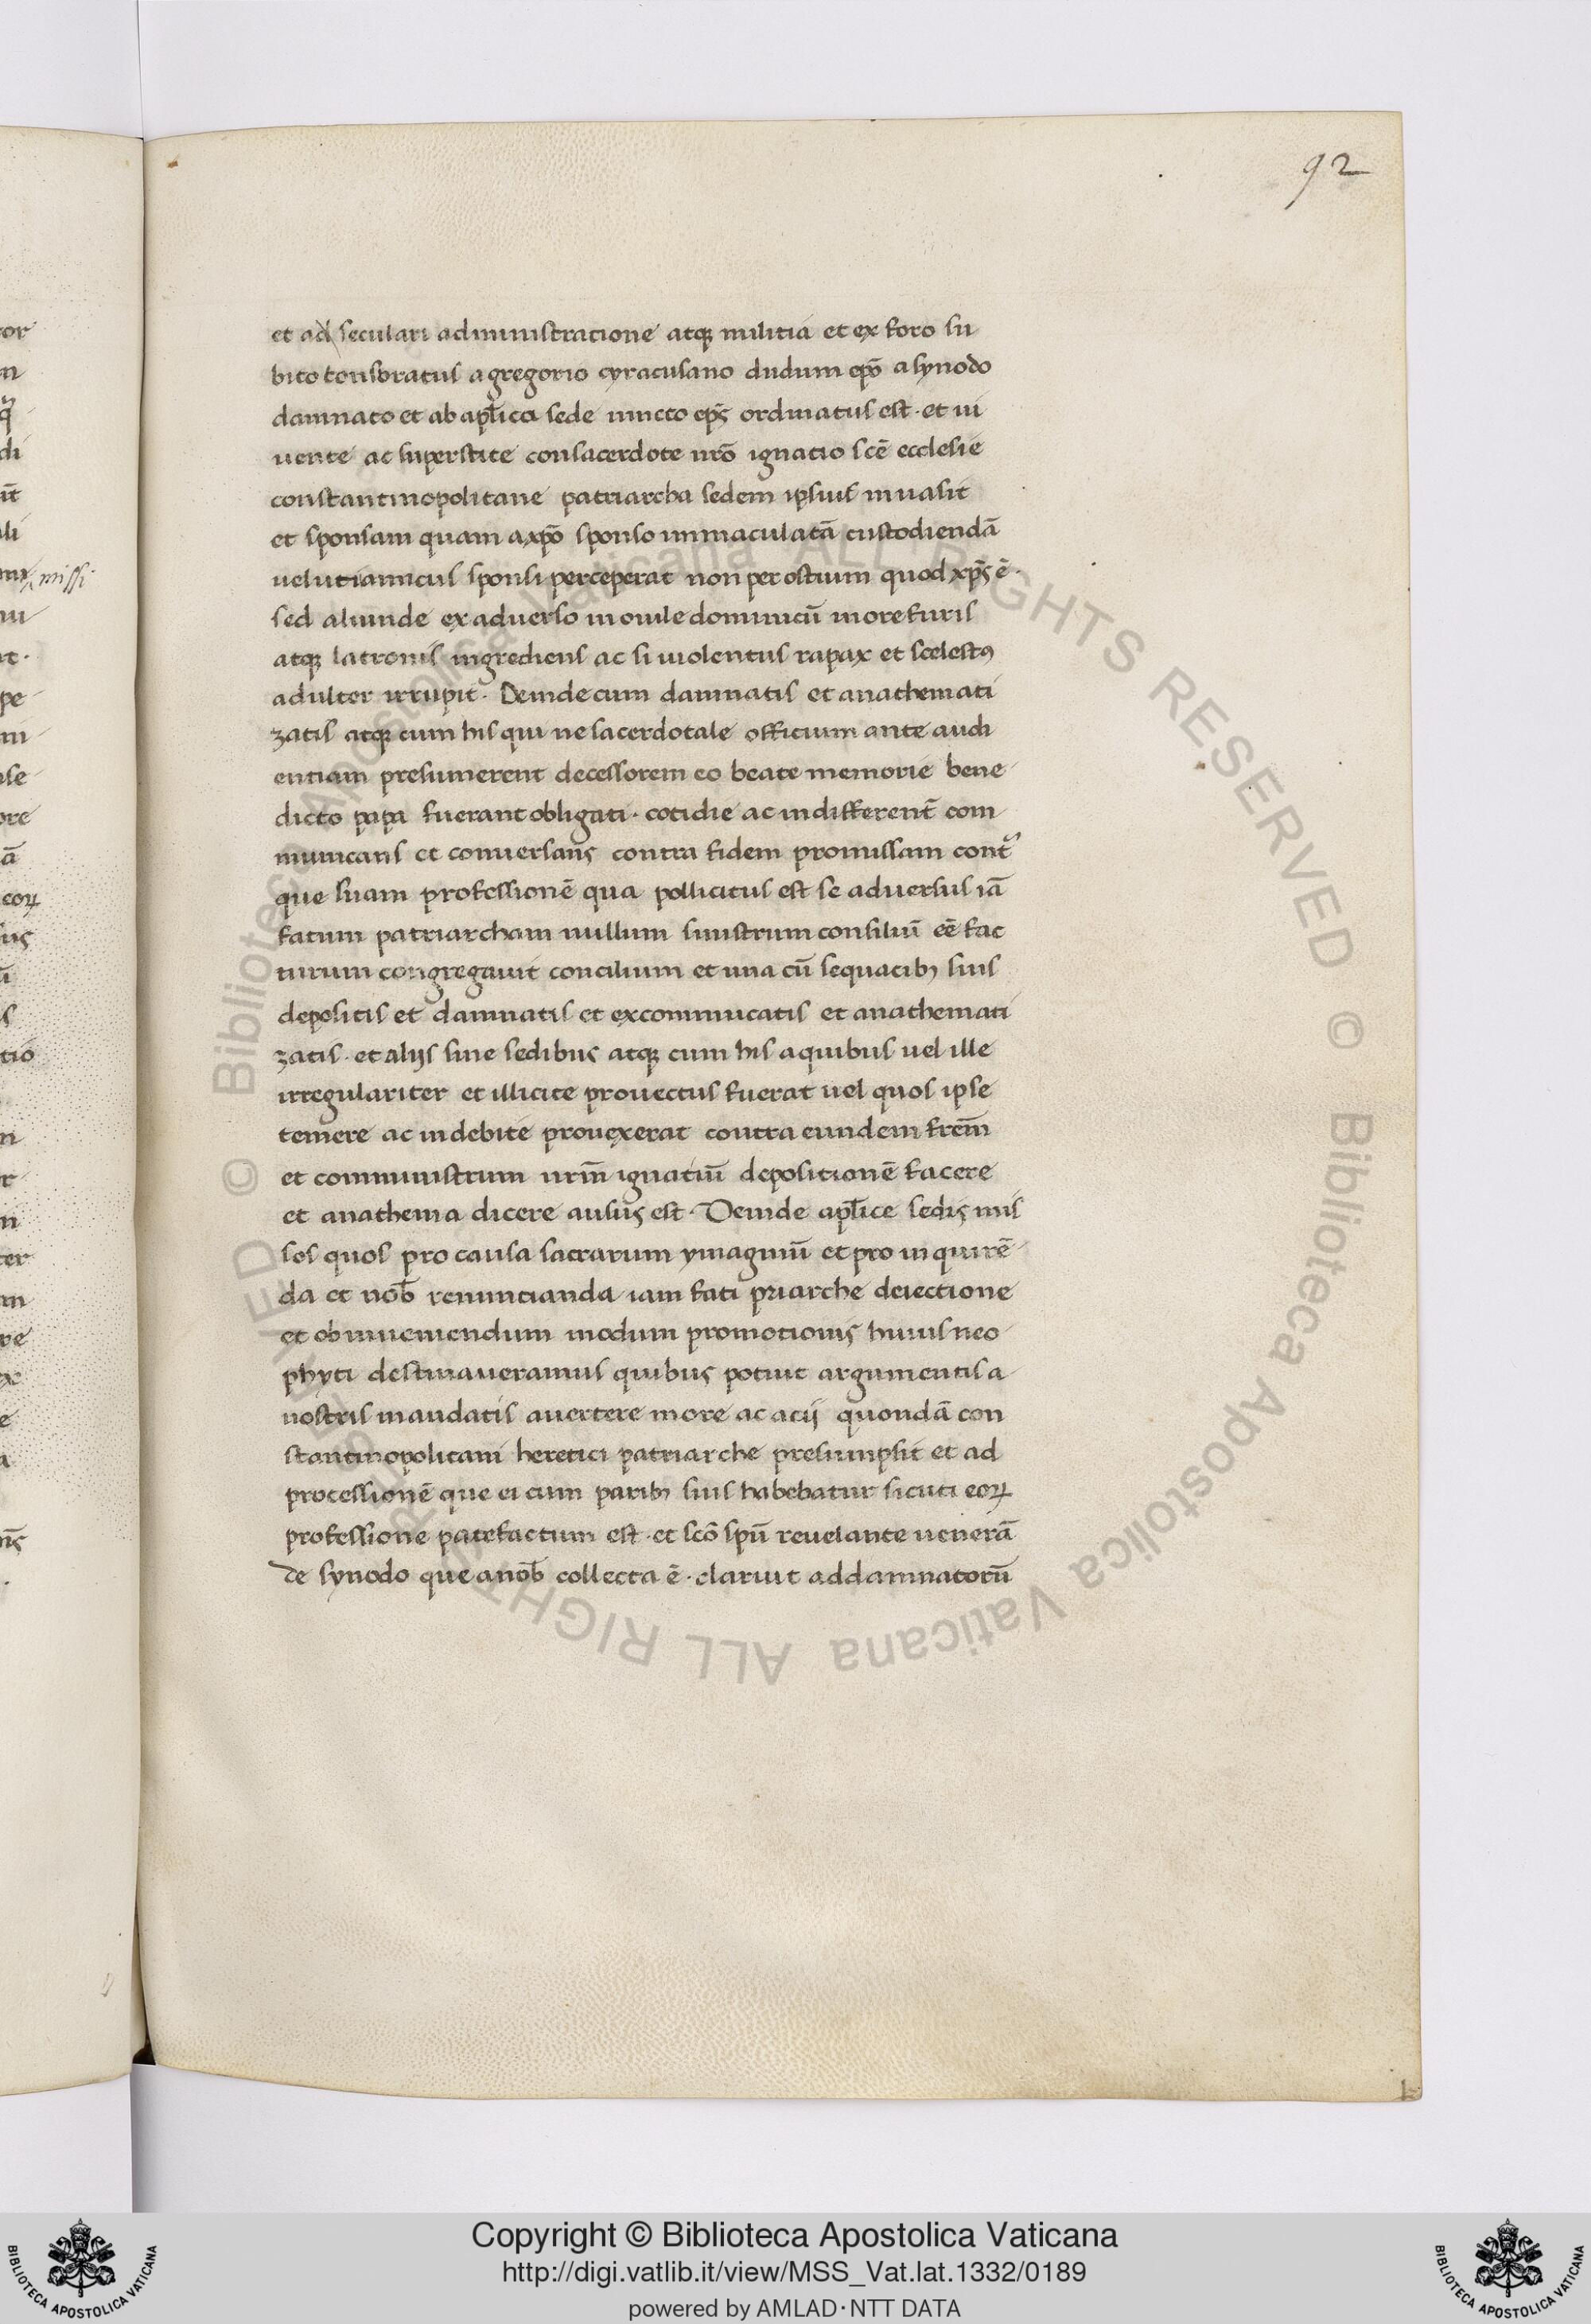 92
et ad seculari administracione atqꝫ militia et ex foro su
bito tonsoratus a gregorio cyracusano dudum ep̄o a synodo
damnato et ab ap̄lica sede uincto ep̄s ordinatus est · et ui
uente ac superstite consacerdote nr̄o ignatio scē ecclesie
constantinopolitane patriarcha sedem ipsius inuasit
et sponsam quam a xp̄o sponso immaculatā custodiendā
uelut amicus sponsi perceperat non per ostium quod xp̄s ē ·
sed aliunde ex aduerso in ouile dominicū more furis
atqꝫ latronis ingrediens ac si uiolentus rapax et scelestꝰ
adulter irrupit · Deinde cum damnatis et anathemati
zatis atqꝫ cum his qui ne sacerdotale officium ante audi
entiam presumerent decessorem eo beate memorie bene
dicto papa fuerant obligati · cotidie ac indifferent̄ com
municans et conuersans contra fidem promissam cont͛
que suam professionē qua pollicitus est se aduersus iā
fatum patriarcham nullum sinistrum consiliū eē fac
turum congregauit concilium et una cū sequacibꝫ suis
depositis et damnatis et excommucatis et anathemati
zatis · et alijs sine sedibus atqꝫ cum his a quibus uel ille
irregulariter et illicite prouectus fuerat uel quos ipse
temere ac indebite prouexerat contra eundem frem̄
et comministrum nrm̄ ignatiū depositionē facere
et anathema dicere ausus est · Deinde ap̄lice sedis mis
sos quos pro causa sacrarum ymaginū et pro inquirē
da et nob̄ renuntianda iam fati p̄riarche deiectione
et ob inueniendum modum promotionis huius neo
phyti destinaueramus quibus potuit argumentis a
nostris mandatis auertere more ac acij quondā con
stantinopolitani heretici patriarche presumpsit et ad
processionē que ei cum paribꝫ suis habebatur sicuti eoꝝ
professione patefactum est · et scō spū reuelante uenerā
de synodo que a nob̄ collecta ē · claruit ad damnatorū
missi
Copyright © Biblioteca Apostolica Vaticana
http://digi.vatlib.it/view/MSS_Vat.lat.1332/0189
powered by AMLAD·NTT DATA